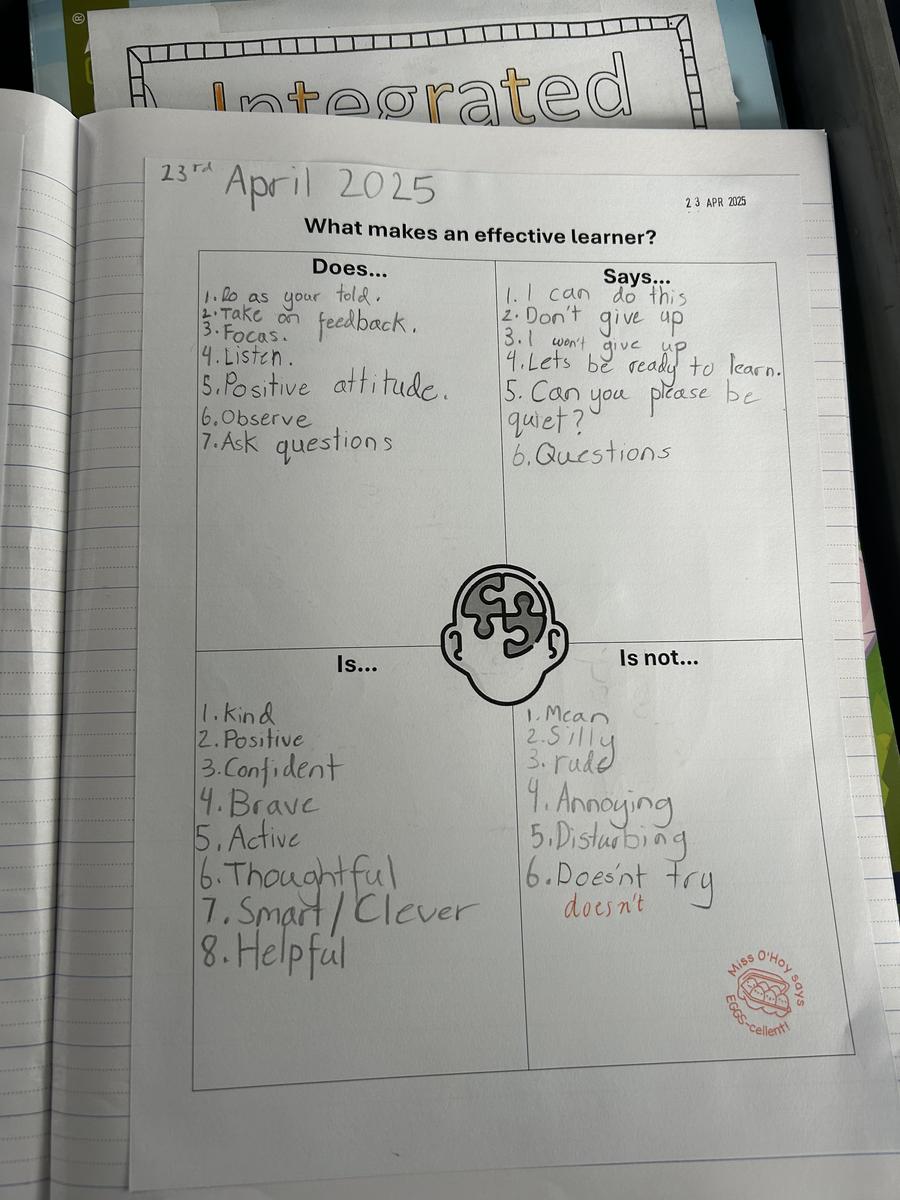 ®
Integrated
23rd April 2025
23 APR 2025
What makes an effective learner?
Does...
1. Do as your told.
2. Take on feedback.
3. Focas.
4. Listen.
5. Positive attitude.
6. Observe
7. Ask questions
Says...
1. I can do this
2. Don't give up
3. I won't give up
4. Lets be ready to learn.
5. Can you please be
quiet?
6. Questions
Is...
1. Kind
2. Positive
3. Confident
4. Brave
5. Active
6. Thoughtful
7. Smart/Clever
8. Helpful
Is not...
1. Mean
2. Silly
3. rude
4. Annoying
5. Disturbing
6. Does'nt try
doesn't
Miss O'Hoy says
EGGS-cellent!